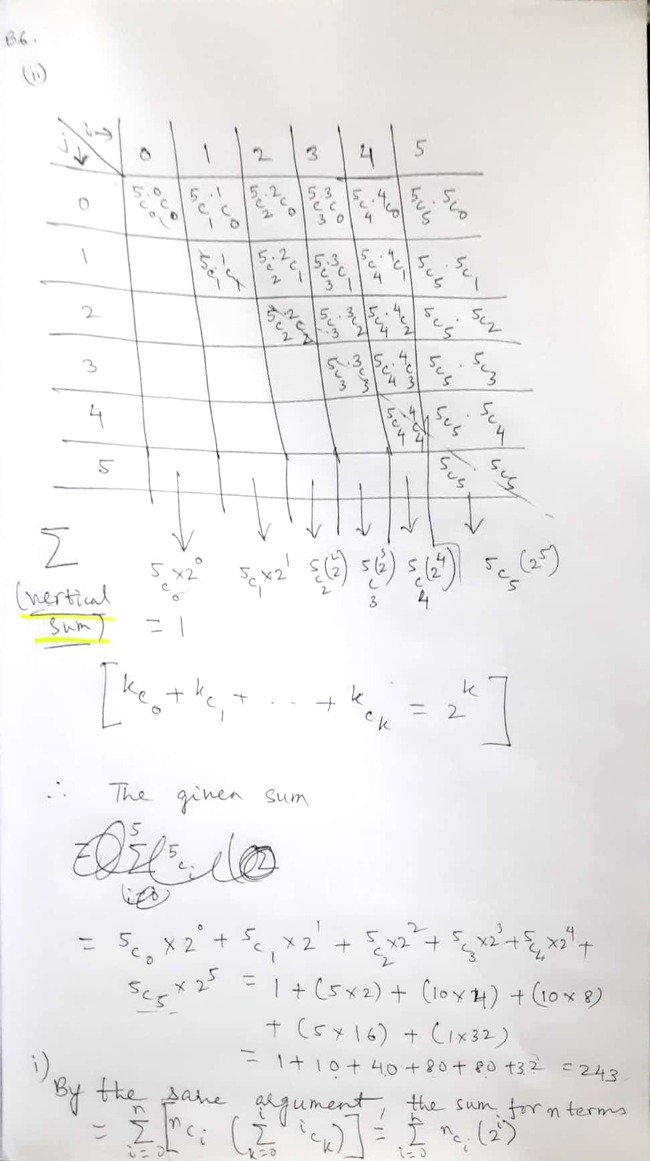 B6.
(ii)
j↓ i→ 0 1 2 3 4 5
0 ⁵c₀·⁰c₀ ⁵c₁·¹c₀ ⁵c₂·²c₀ ⁵c₃·³c₀ ⁵c₄·⁴c₀ ⁵c₅·⁵c₀
1 ⁵c₁·¹c₁ ⁵c₂·²c₁ ⁵c₃·³c₁ ⁵c₄·⁴c₁ ⁵c₅·⁵c₁
2 ⁵c₂·²c₂ ⁵c₃·³c₂ ⁵c₄·⁴c₂ ⁵c₅·⁵c₂
3 ⁵c₃·³c₃ ⁵c₄·⁴c₃ ⁵c₅·⁵c₃
4 ⁵c₄·⁴c₄ ⁵c₅·⁵c₄
5 ⁵c₅ ⁵c₅
Σ ⁵c₀×2⁰ ⁵c₁×2¹ ⁵c₂(2²) ⁵c₃(2³) ⁵c₄(2⁴) ⁵c₅(2⁵)
(vertical
sum) = 1
[ᵏc₀ + ᵏc₁ + ... + ᵏcₖ = 2ᵏ]
∴ The given sum
= ⁵c₀ × 2⁰ + ⁵c₁ × 2¹ + ⁵c₂ × 2² + ⁵c₃ × 2³ + ⁵c₄ × 2⁴ +
⁵c₅ × 2⁵ = 1 + (5×2) + (10×4) + (10×8)
+ (5×16) + (1×32)
= 1 + 10 + 40 + 80 + 80 + 32 = 243
i) By the same argument, the sum for n terms
= Σᵢ₌₀ⁿ [ⁿcᵢ (Σₖ₌₀ⁱ ⁱcₖ)] = Σᵢ₌₀ⁿ ⁿcᵢ (2ⁱ)